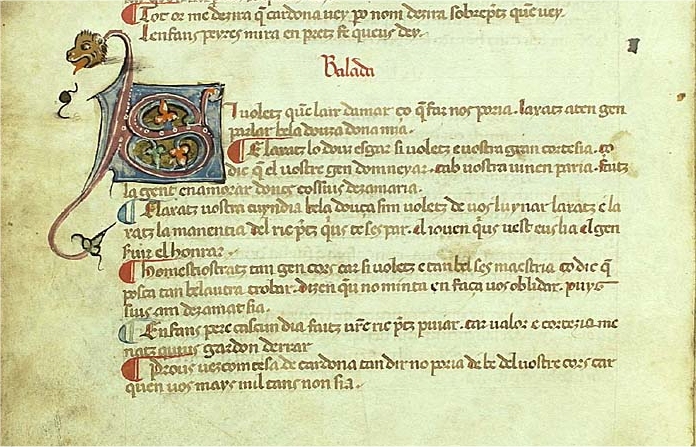 Tot oz me dezira q̄ cardona vey po nom dezira sobrep̄tz quē vey.
Lenfans peyres mira en pretz se queus dey.
Balada
Si voletz quē lair damar co q̄ far nos poria. laratz aten gen
parlar bela douza dona mia.
E laratz lo dous esgar si voletz e vostra gran cortesia. co
dic q̄ el vostre gen domneyar. cab vostra umen paria. faitz
la gent enamorar donc cossius dezamaria.
E laratz vostra cundia bela douca sim voletz de vos luynar laratz e la
ratz la manentia del ric p̄tz q̄us te ses par. el iouen q̄us vest eus lia el gen
fuir el honrar
tan gen cors car si voletz e tan bel ses maestria co dic q̄
posca tan bel autra trobar. dizen quū no minta en faca vos oblidar. puys
sius am dezamatz sia.
Enfans pere cascun dia faitz vr̄e ric p̄tz puiar. car valor e cortezia me
natz gardon derrar
Prous vezcomtesa de cardona tan dir no poria de be del vostre cors car
quen vos mays mil tans non sia.